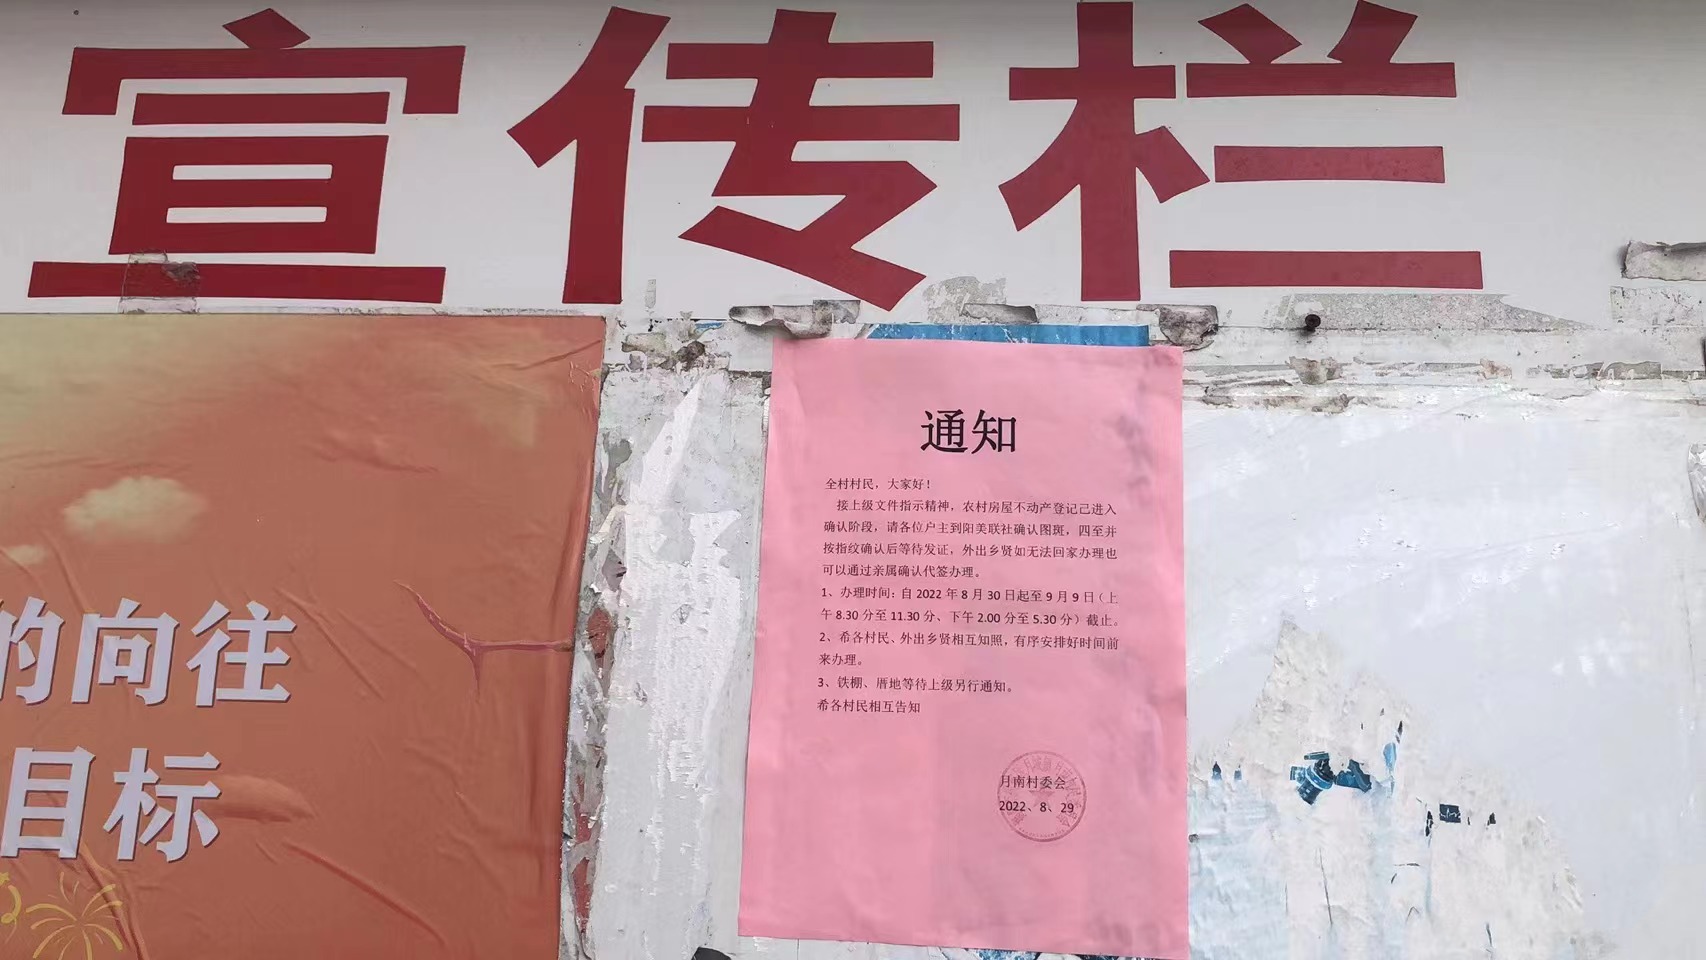 宣传栏
的向往
目标
通知
全村村民，大家好！
接上级文件指示精神，农村房屋不动产登记己进入
确认阶段，请各位户主到阳美联社确认图斑，四至并
按指纹确认后等待发证，外出乡贤如无法回家办理也
可以通过亲属确认代签办理。
1、办理时间：自 2022 年 8 月 30 日起至 9 月 9 日（上
午 8.30 分至 11.30 分、下午 2.00 分至 5.30 分）截止。
2、希各村民、外出乡贤相互知照，有序安排好时间前
来办理。
3、铁棚、厝地等待上级另行通知。
希各村民相互告知
月南村委会
2022、8、29